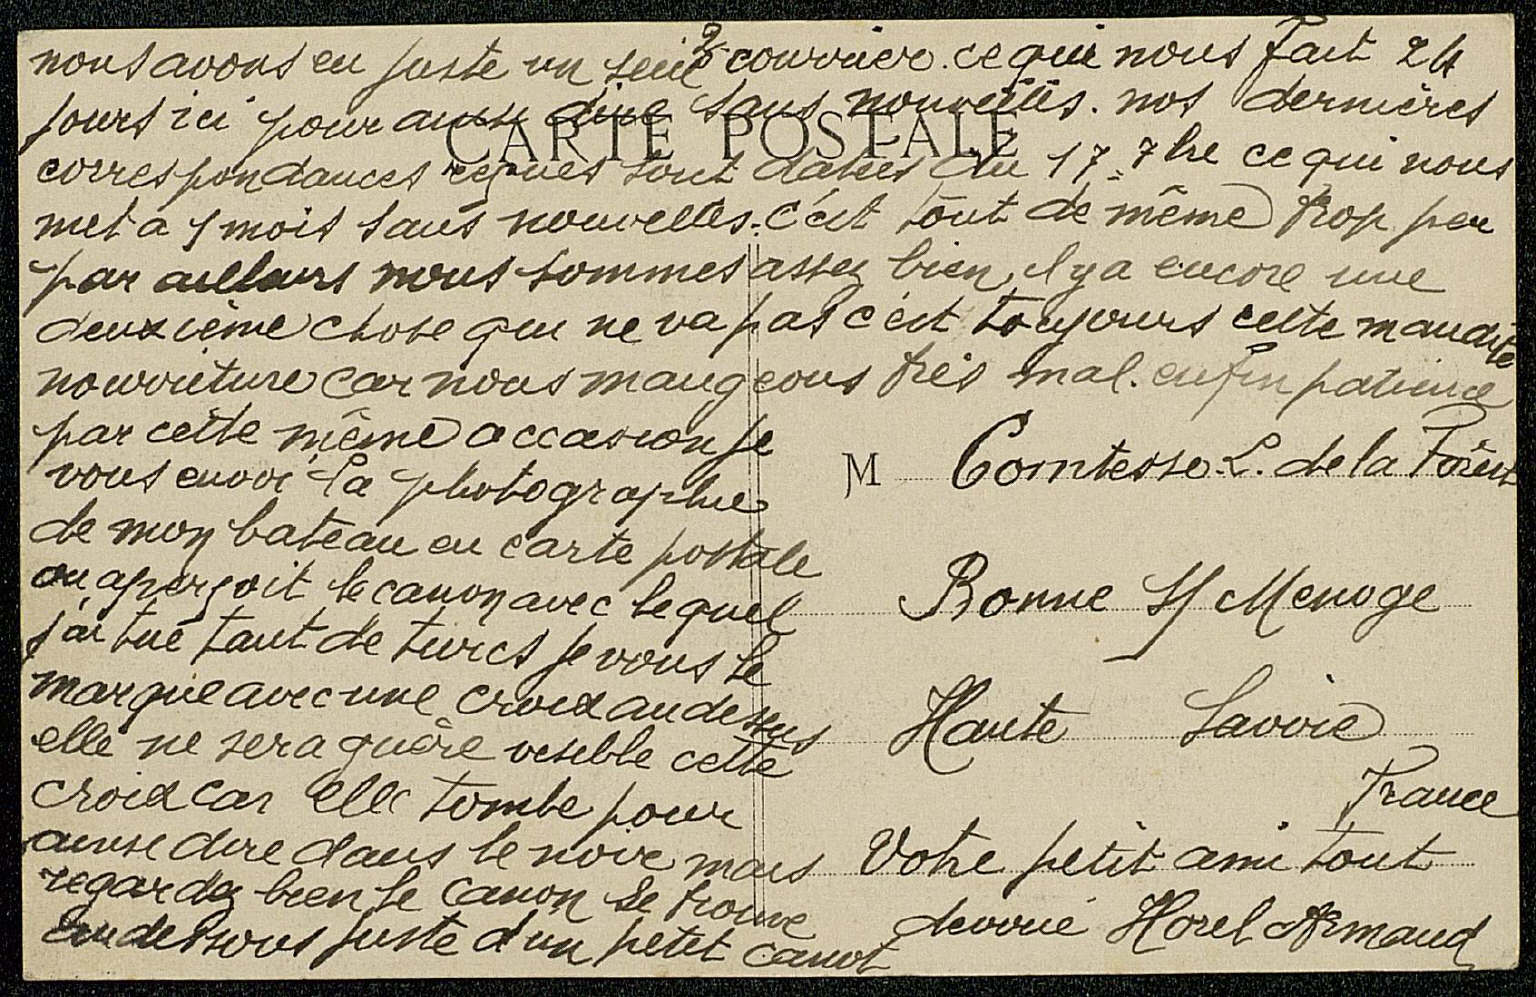 nous avons eu juste un seul courrier. ce qui nous Fait 24
jours ici pour ainsi dire sans nouvelles. nos dernières
CARTE POSTALE
correspondances reçues sont datées du 17. 7bre ce qui nous
met a 1 mois sans nouvelles. c'ést tout de même trop peu
par ailleurs nous sommes assez bien, il y a encore une
deuxième chose qui ne va pas c'ést toujours cette maudite
nourriture car nous mangeons très mal. enfin patience
par cette même occasion je
vous envoi la photographie
de mon bateau en carte postale
on aperçoit le canon avec lequel
j'ai tué tant de turcs je vous le
marque avec une croix au dessus
elle ne sera guère visible cette
croix car elle tombe pour
ainsi dire dans le noir mais
regardez bien le canon se trouve
en dessous juste d'un petit canot
M Comtesse L. de la Forest
Bonne S/ Menoge
Haute Savoie
France
Votre petit ami tout
devoué Horel Armand